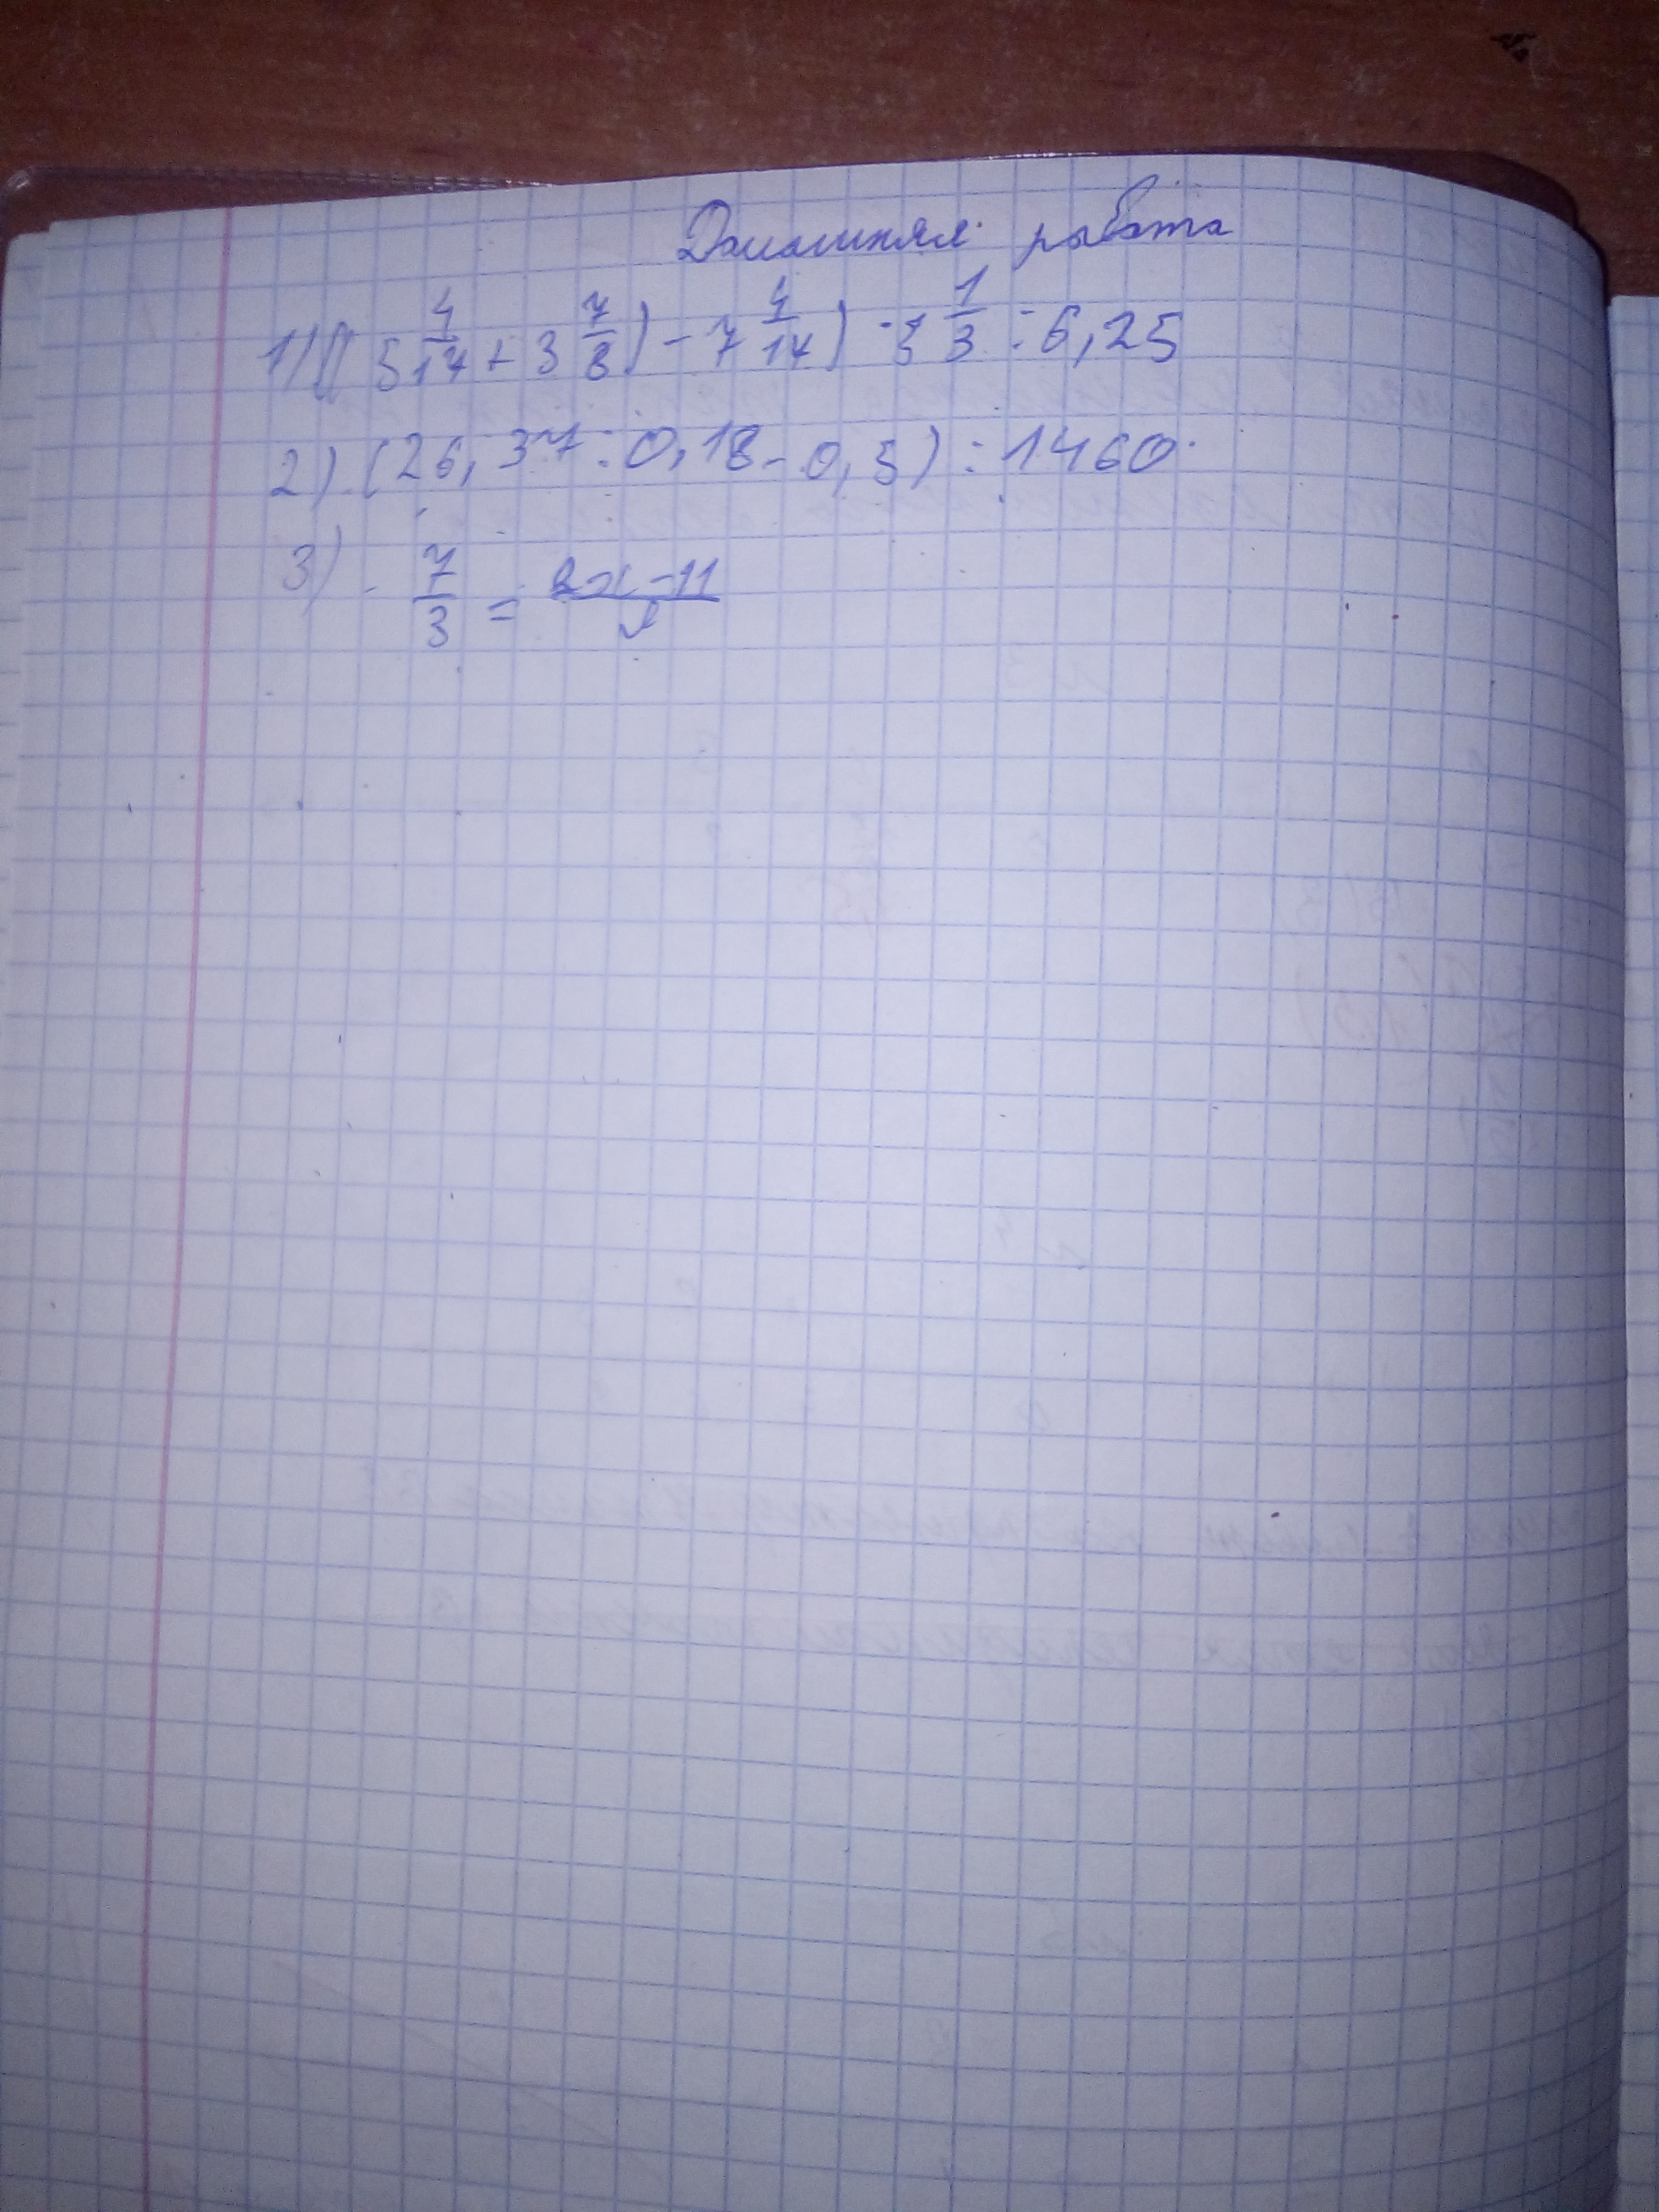 Домашняя работа
1) ((5 4/14 + 3 7/8) - 7 4/14) · 3 1/3 : 6,25
2) (26,37 : 0,18 - 0,5) : 1460
3) 7/3 = 2x-11/